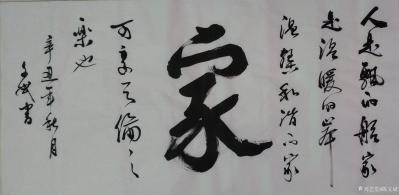 人是飘的船家
是温暖的岸
温馨和谐的家
家
可享天倫之
樂也
辛丑年秋月